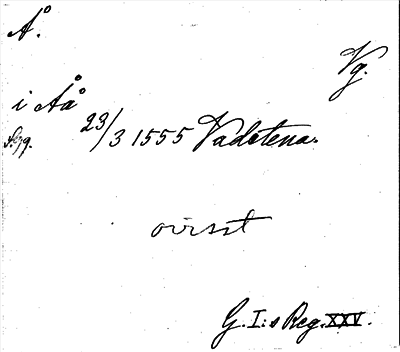 Å.
Vg.
i Åå
23/3 1555 Vadstena.
ovisst
G. I:s Reg. XXV.